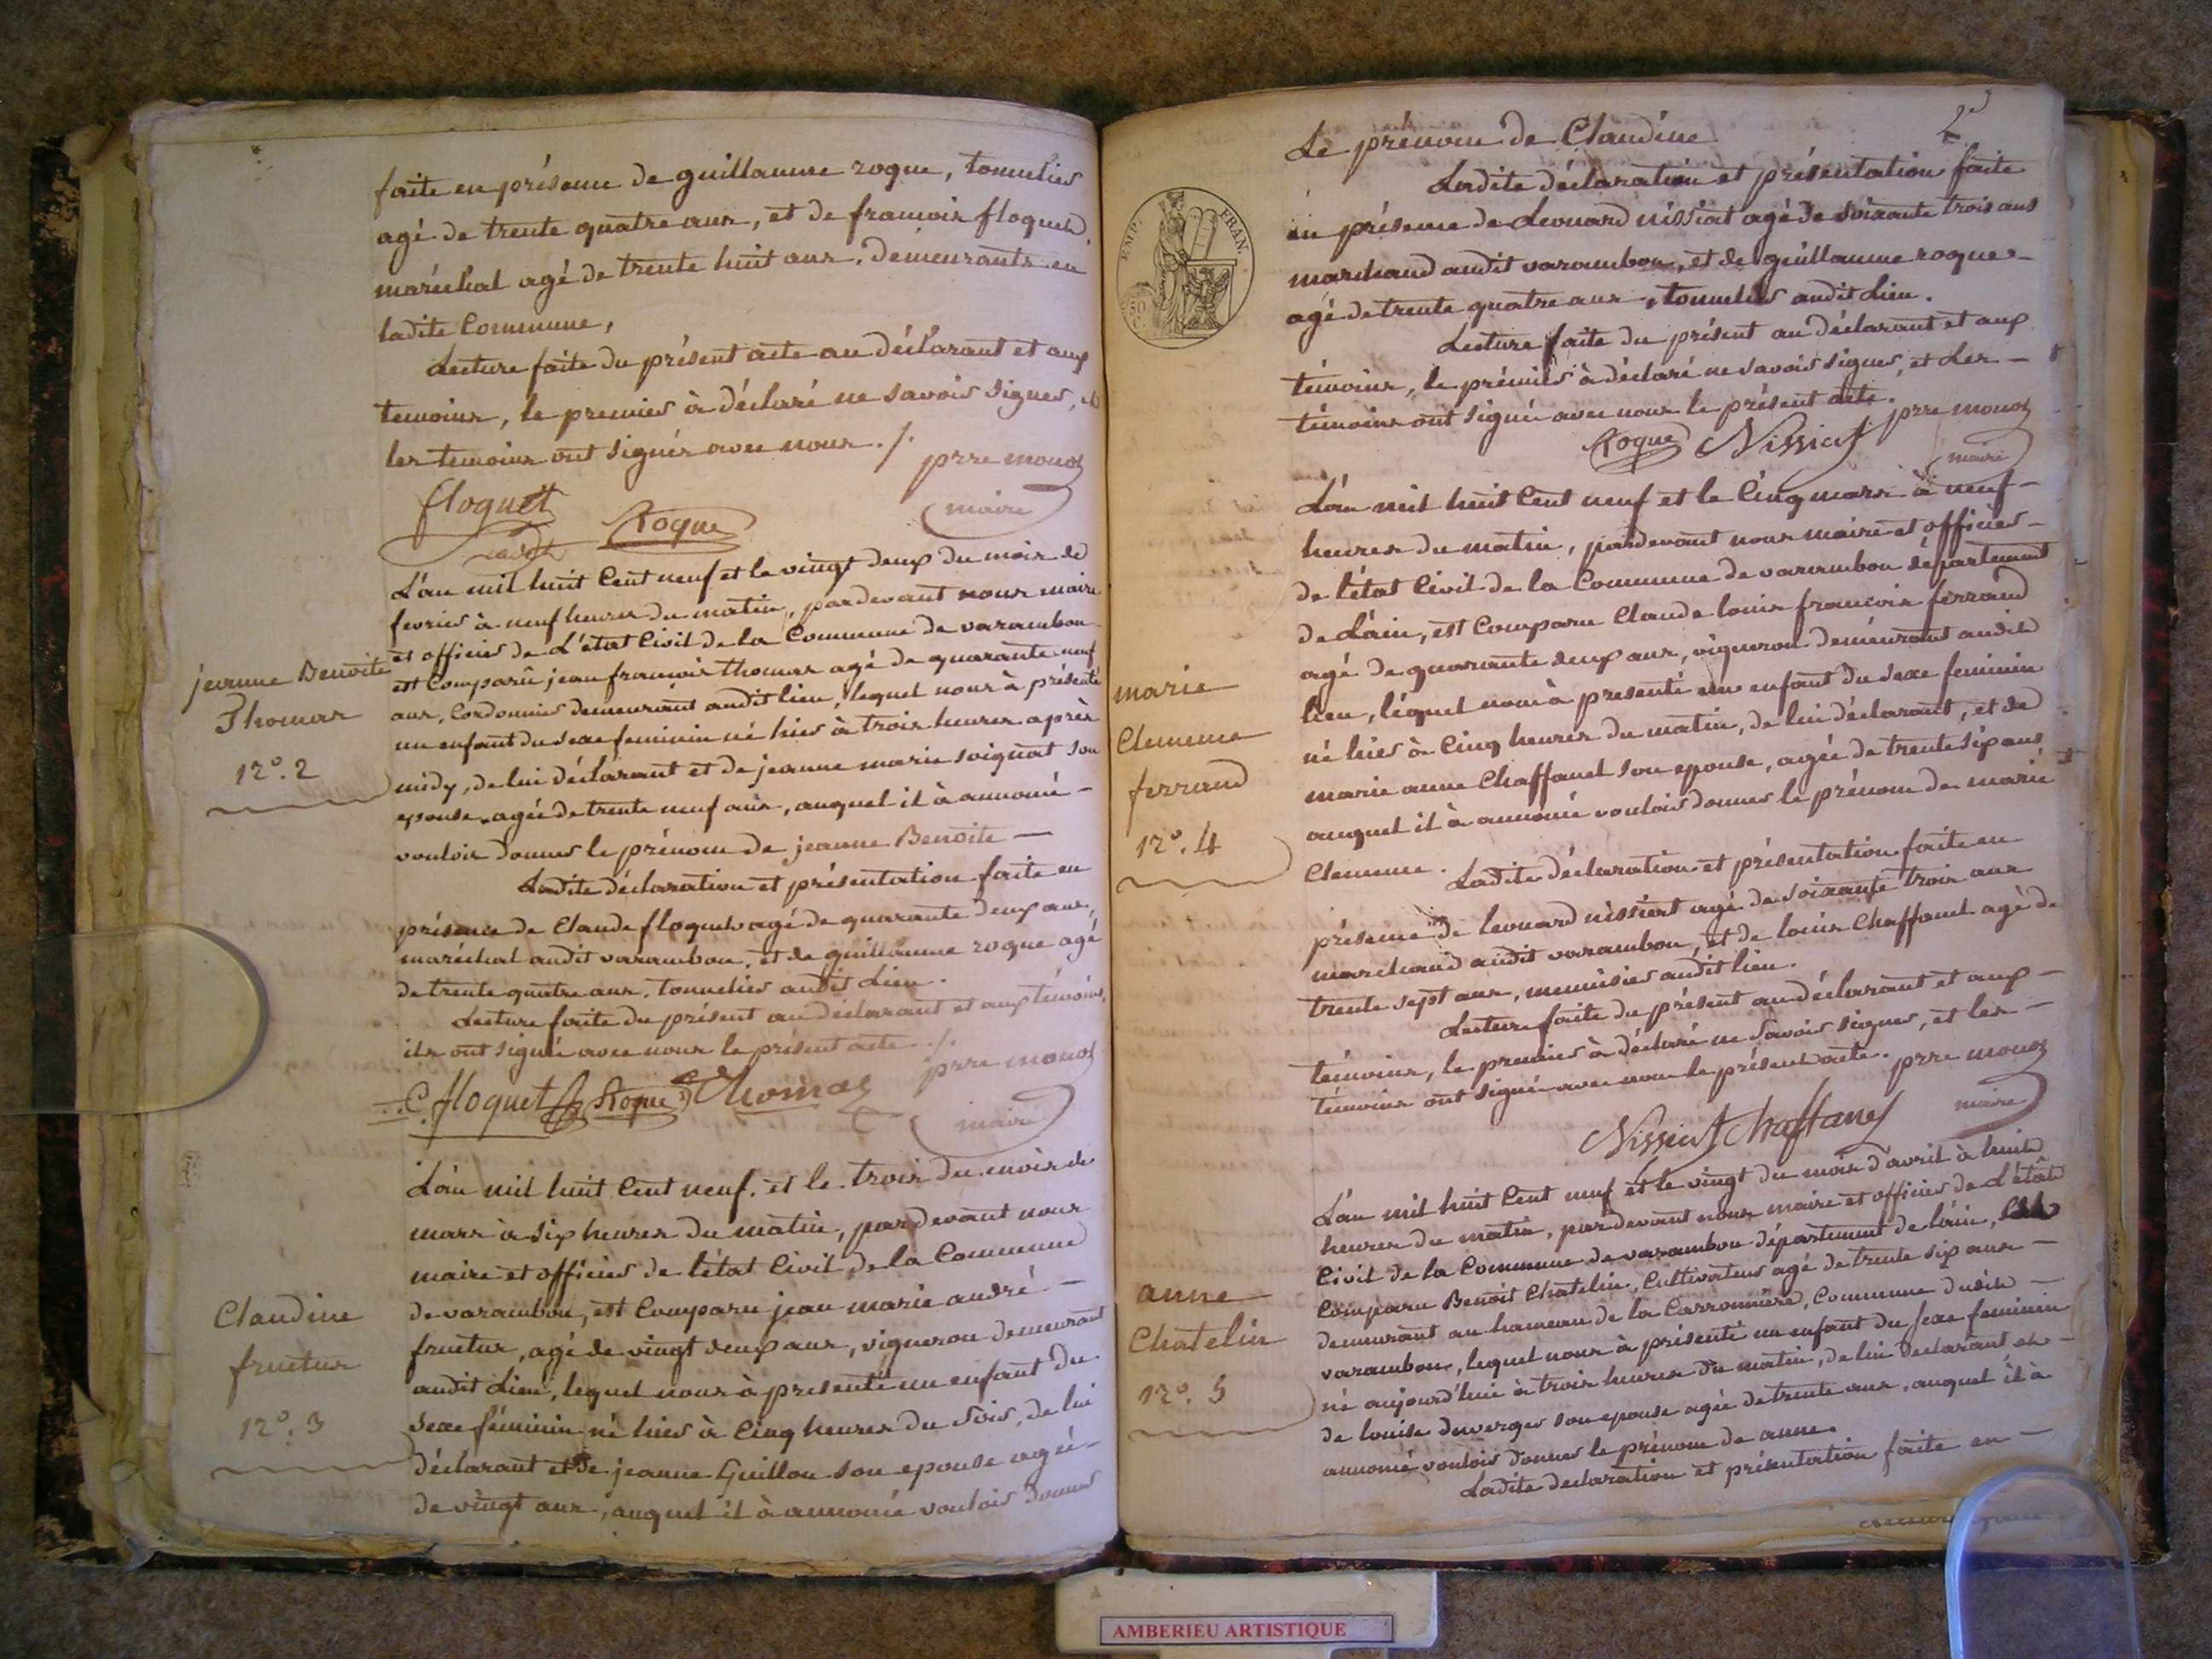 faite en présence de guillaume roque, tonnelier
agé de trente quatre ans, et de francois floquet,
maréchal agé de trente huit ans, demeurants en
ladite Commune,
Lecture faite du présent acte au déclarant et aux
temoins, le premier à déclaré ne savoir signer, et
les temoins ont signés avec nous ./.
prre monod
maire
floquet
Roque
L'an mil huit Cent neuf et le vingt deux du mois de
fevrier à neuf heures du matin, pardevant nous maire
et officier de L'état Civil de la Commune de varambon
est Comparû jean francois thomas agé de quarante neuf
ans, Cordonnier demeurant audit lieu, lequel nous à présenté
un enfant du sexe feminin né hier à trois heures après
midy, de lui déclarant et de jeanne marie soignat son
epouse agée de trente neuf ans, auquel il à annoncé
vouloir donner le prénom de jeanne Benoite
Ladite déclaration et présentation faite en
présence de Claude floquet agé de quarante deux ans,
maréchal audit varambon, et de guillaume roque agé
de trente quatre ans, tonnelier audit Lieu.
Lecture faite du présent au déclarant et aux témoins,
ils ont signé avec nous le présent acte ./.
prre monod
maire
C. floquet Roque Thomas
jeanne Benoite
Thomas
n°. 2
L'an mil huit Cent neuf, et le trois du mois de
mars à six heures du matin, pardevant nous
maire et officier de l'état Civil de la Commune
de varambon, est Comparu jean marie andré
fructus, agé de vingt deux ans, vigneron demeurant
audit Lieu, lequel nous à presenté un enfant du
sexe féminin né hier à Cinq heures du Soir, de lui
déclarant et de jeanne Guillon son epouse agée
de vingt ans, auquel il à annoncé vouloir donner
Claudine
fructus
n°. 3
2
Le prénom de Claudine
Ladite déclaration et présentation faite
en présence de Leonard nissiat agé de soixante trois ans
marchand audit varambon, et de guillaume roque
agé de trente quatre ans, tonnelier audit Lieu.
Lecture faite du présent au déclarant et aux
témoins, le prémier à déclaré ne savoir signer, et Les
témoins ont signé avec nous le présent acte.
prre monod
maire
Roque Nissiat
EMP. FRAN.
L'an mil huit Cent neuf et le Cinq mars à neuf
heures du matin, pardevant nous maire et officier
de l'état Civil de la Commune de varambon département
de L'ain, est Comparu Claude louis francois ferrand
agé de quarante deux ans, vigneron demeurant audit
lieu, léquel nous à presenté un enfant du sexe feminin
né hier à Cinq heures du matin, de lui déclarant, et de
marie anne Chaffanel son epouse, agée de trente six ans
auquel il à annoncé vouloir donner le prénom de marie
Clemence. Ladite déclaration et présentation faite en
présence de leonard nissiat agé de soixante trois ans
marchand audit varambon, et de louis Chaffanel agé de
trente sept ans, menuisier audit lieu.
Lecture faite du présent au déclarant et aux
témoins, le premier à déclaré ne Savoir signer, et les
témoins ont signé avec nous le présent acte.
prre monod
maire
Nissiat Chaffanel
marie
Clemence
ferrand
n°. 4
L'an mil huit Cent neuf et le vingt du mois d'avril à huit
heures du matin, pardevant nous maire et officier de L'état
Civil de la Commune de varambon département de lain, est
Comparu Benoit Chatelin, Cultivateur agé de trente six ans
demeurant au hameau de la Carronniere, Commune dudit
varambon, lequel nous à présenté un enfant du sexe feminin
né aujourd'hui à trois heures du matin, de lui déclarant et
de louise duverger son epouse agée de trente ans, auquel il à
annoncé vouloir donner le prénom de anne.
Ladite declaration et présentation faite en
anne
Chatelin
n°. 5
AMBERIEU ARTISTIQUE